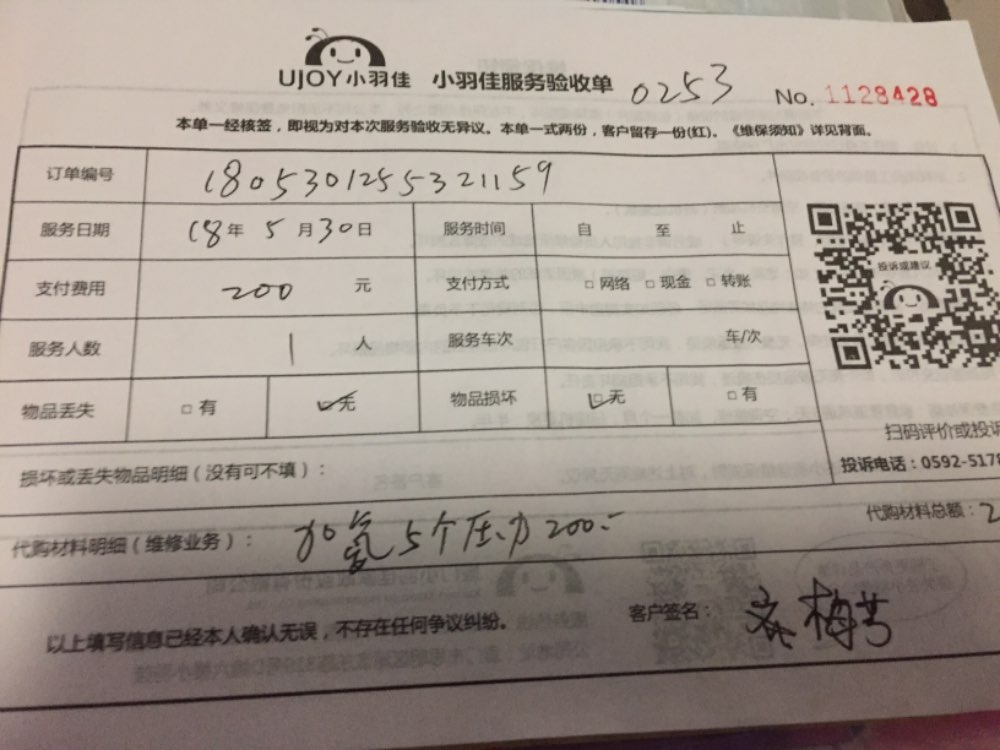 UJOY小羽佳 小羽佳服务验收单 0253 No. 1128428
本单一经核签，即视为对本次服务验收无异议。本单一式两份，客户留存一份(红)。《维保须知》详见背面。
订单编号 1805301255321159
服务日期 18年 5月30日 服务时间 自 至 止
投诉或建议
支付费用 200 元 支付方式 □网络 □现金 □转账
服务人数 1 人 服务车次 车/次
物品丢失 □有 ☑无 物品损坏 ☑无 □有
扫码评价或投诉
损坏或丢失物品明细（没有可不填）：
投诉电话：0592-5178
代购材料明细（维修业务）： 加氟5个压力200.-
代购材料总额：2
以上填写信息已经本人确认无误，不存在任何争议纠纷。 客户签名：